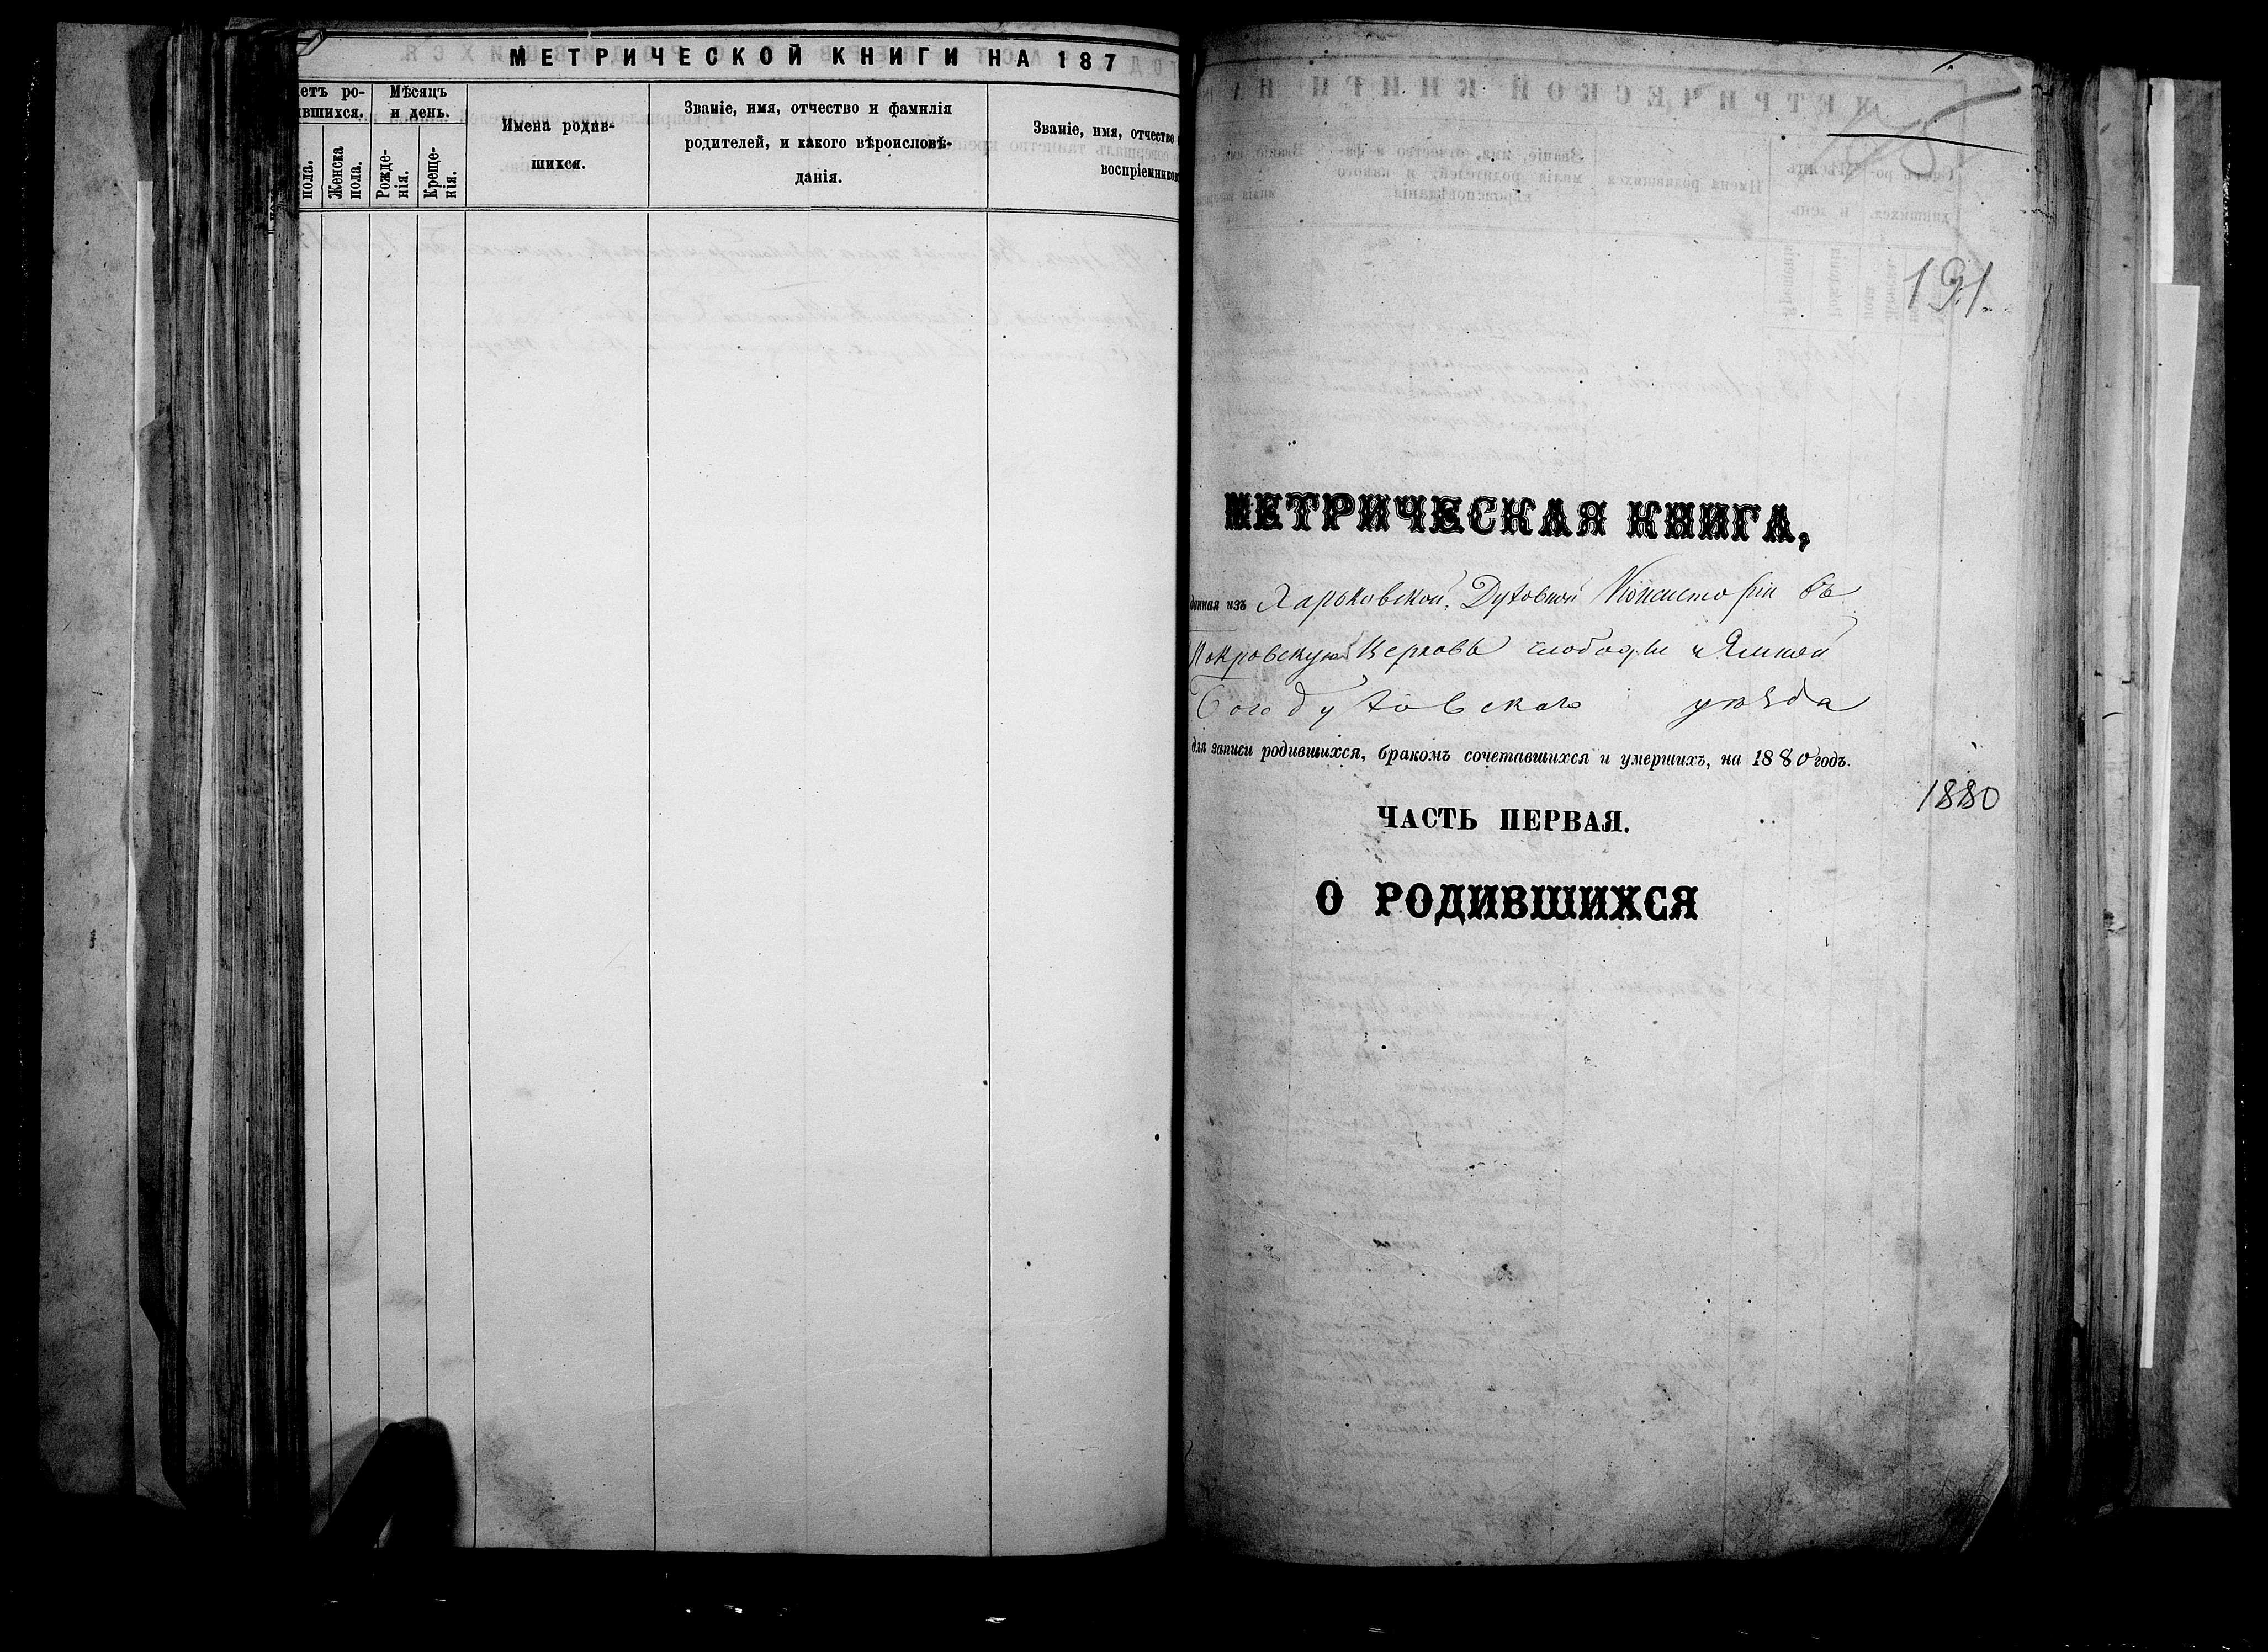 МЕТРИЧЕСКОЙ КНИГИ НА 187
етъ ро-
вшихся.
Мѣсяцъ
и день.
пола.
Женска
пола.
Рожде-
нія.
Креще-
нія.
Имена родив-
шихся.
Званіе, имя, отчество и фамилія
родителей, и какого вѣроисповѣ-
данія.
Званіе, имя, отчество
воспріемников
191.
МЕТРИЧЕСКАЯ КНИГА,
данная изъ Харьковской Духовной Консисторіи въ
Покровскую Церковь слободы Ямной
Богодуховскаго уѣзда
для записи родившихся, бракомъ сочетавшихся и умершихъ, на 1880 годъ.
1880
ЧАСТЬ ПЕРВАЯ.
О РОДИВШИХСЯ